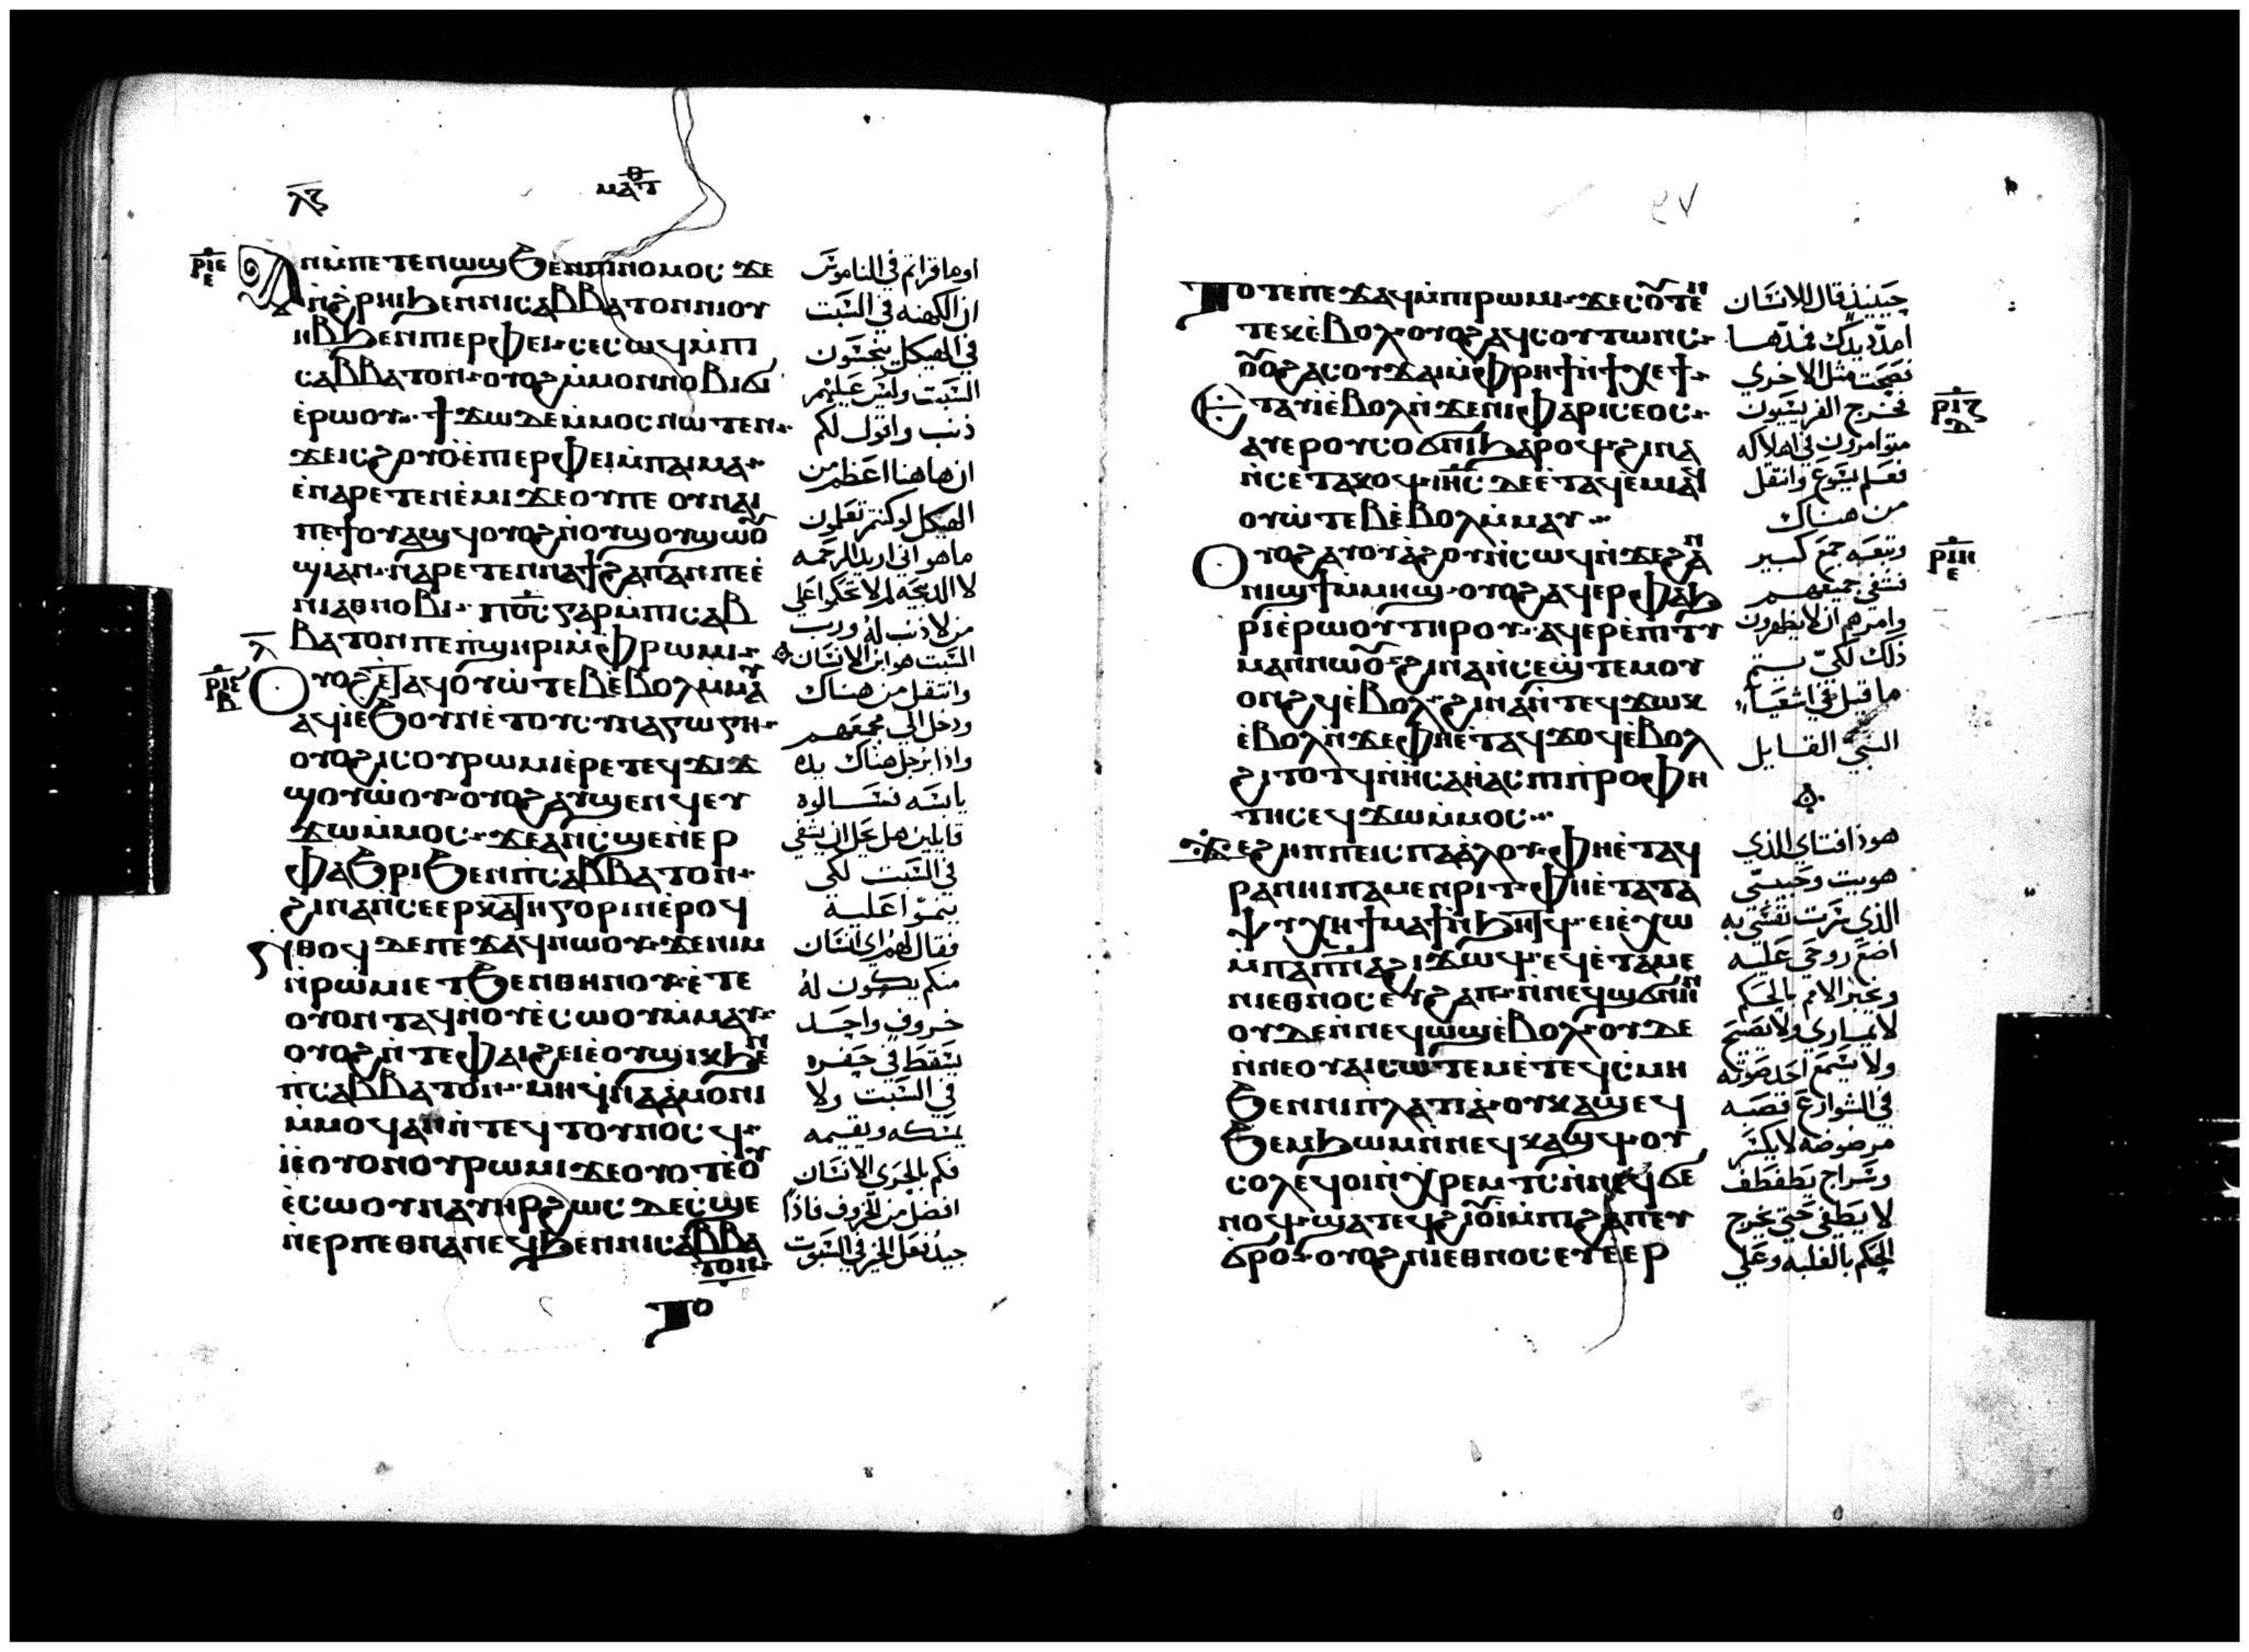 ⲗⲍ
ⲙⲁⲧ
ⲣⲓⲉ
ⲉ
ⲁⲛⲙ̀ⲡⲉⲧⲉⲛⲱϣ ϧⲉⲛⲡⲓⲛⲟⲙⲟⲥ ϫⲉ
ⲛ̀ϩⲣⲏⲓ ϧⲉⲛⲛⲓⲥⲁⲃⲃⲁⲧⲟⲛ ⲛⲓⲟⲩ
ⲏⲃ ϧⲉⲛⲡⲓⲉⲣⲫⲉⲓ ⲥⲉⲥⲱϥ ⲙ̀ⲡⲓ
ⲥⲁⲃⲃⲁⲧⲟⲛ ⲟⲩⲟϩ ⲙ̀ⲙⲟⲛ ⲛⲟⲃⲓ ϭⲓ
ⲉ̀ⲣⲱⲟⲩ ϯϫⲱ ⲇⲉ ⲙ̀ⲙⲟⲥ ⲛⲱⲧⲉⲛ
ϫⲉ ⲓⲥ ϩⲟⲩⲟ̀ ⲉ̀ⲡⲓⲉⲣⲫⲉⲓ ⲙ̀ⲡⲁⲓⲙⲁ
ⲉ̀ⲛⲁⲣⲉⲧⲉⲛⲉ̀ⲙⲓ ϫⲉ ⲟⲩ ⲡⲉ ⲟⲩⲛⲁⲓ
ⲡⲉϯⲟⲩⲁϣϥ ⲟⲩⲟϩ ⲛ̀ⲟⲩϣⲟⲩϣⲱⲟⲩ
ϣⲓ ⲁⲛ ⲛⲁⲣⲉⲧⲉⲛⲛⲁϯϩⲁⲡ ⲁⲛ ⲡⲉ ⲉ̀
ⲛⲓⲁⲑⲛⲟⲃⲓ ⲡⲟ̅ⲥ̅ ⲅⲁⲣ ⲙ̀ⲡⲓⲥⲁⲃ
ⲃⲁⲧⲟⲛ ⲡⲉ ⲡ̀ϣⲏⲣⲓ ⲙ̀ⲫⲣⲱⲙⲓ
ⲗ
ⲣⲓⲋ
ⲃ
ⲟⲩⲟϩ ⲉ̀ⲧⲁϥⲟⲩⲱ̀ⲧⲉⲃ ⲉ̀ⲃⲟⲗ ⲙ̀ⲙⲁⲩ
ⲁϥⲓ̀ ⲉ̀ϧⲟⲩⲛ ⲉ̀ⲧⲟⲩⲥⲩⲛⲁⲅⲱⲅⲏ
ⲟⲩⲟϩ ⲓⲥ ⲟⲩⲣⲱⲙⲓ ⲉ̀ⲣⲉ ⲧⲉϥϫⲓϫ
ϣⲟⲩⲱ̀ⲟⲩ ⲟⲩⲟϩ ⲁⲩϣⲉⲛϥ ⲉⲩ
ϫⲱ ⲙ̀ⲙⲟⲥ ϫⲉ ⲁⲛ ⲥ̀ϣⲉ ⲛ̀ⲉⲣ
ⲫⲁϧⲣⲓ ϧⲉⲛⲡ̀ⲥⲁⲃⲃⲁⲧⲟⲛ
ϩⲓⲛⲁ ⲛ̀ⲥⲉⲉⲣⲕⲁⲧⲏⲅⲟⲣⲓⲛ ⲉ̀ⲣⲟϥ
ⲛ̀ⲑⲟϥ ⲇⲉ ⲡⲉϫⲁϥ ⲛⲱⲟⲩ ϫⲉ ⲛⲓⲙ
ⲛ̀ⲣⲱⲙⲓ ⲉⲧϧⲉⲛⲑⲏⲛⲟⲩ ⲉ̀ⲧⲉ
ⲟⲩⲟⲛⲧⲁϥ ⲛ̀ⲟⲩⲉ̀ⲥⲱⲟⲩ ⲙ̀ⲙⲁⲩ
ⲟⲩⲟϩ ⲛ̀ⲧⲉ ⲫⲁⲓ ϩⲉⲓ ⲉ̀ⲟⲩϣⲓⲕ ϧⲉⲛ
ⲡ̀ⲥⲁⲃⲃⲁⲧⲟⲛ ⲙⲏ ϥ̀ⲛⲁⲁ̀ⲙⲟⲛⲓ
ⲙ̀ⲙⲟϥ ⲁⲛ ⲛ̀ⲧⲉϥⲧⲟⲩⲛⲟⲥϥ
ⲓⲉ ⲟⲩⲟⲛ ⲟⲩⲣⲱⲙⲓ ϫⲉ ⲟⲩⲟⲧ ⲉ̀ⲟⲩ
ⲉ̀ⲥⲱⲟⲩ ⲛⲁⲩⲏⲣ ϩⲱⲥ ⲇⲉ ⲥ̀ϣⲉ
ⲛ̀ⲉⲣⲡⲉⲑⲛⲁⲛⲉϥ ϧⲉⲛⲛⲓⲥⲁⲃⲃⲁ
ⲧⲟⲛ
ⲧⲟ
اوما قراتم في الناموس
ان الكهنه في السبت
في الهيكل ينجسون
السبت وليس عليهم
ذنب واقول لكم
ان هاهنا اعظم من
الهيكل لو كنتم تعلمون
ما هو اني اريد الرحمه
لا الذبيحه لم لا تحكموا علي
من لا ذنب له ورب
السبت هو ابن الانسان
وانتقل من هناك
ودخل الي مجمعهم
واذا برجل هناك يده
يابسه فسالوه
قايلين هل يحل ان يشفي
في السبت لكي
ينموا عليه
فقال لهم اي انسان
منكم يكون له
خروف واحد
يسقط في حفره
في السبت ولا
يمسكه ويقيمه
فكم بالحري الانسان
افضل من الخروف فاذا
جيد فعل الخير في السبوت
٩٧
ⲧⲟⲧⲉ ⲡⲉϫⲁϥ ⲙ̀ⲡⲓⲣⲱⲙⲓ ϫⲉ ⲥⲟⲩⲧⲉⲛ
ⲧⲉⲕϫⲓϫ ⲉ̀ⲃⲟⲗ ⲟⲩⲟϩ ⲁϥⲥⲟⲩⲧⲱⲛⲥ
ⲟⲩⲟϩ ⲁⲥⲟⲩϫⲁⲓ ⲙ̀ⲫⲣⲏϯ ⲛ̀ϯⲭⲉϯ
ⲣⲓⲍ
ⲇ
ⲉⲧⲁⲩⲓ̀ ⲉ̀ⲃⲟⲗ ⲛ̀ϫⲉ ⲛⲓⲫⲁⲣⲓⲥⲉⲟⲥ
ⲁⲩⲉⲣⲟⲩⲥⲟϭⲛⲓ ϧⲁⲣⲟϥ ϩⲓⲛⲁ
ⲛ̀ⲥⲉⲧⲁⲕⲟϥ ⲓⲏ̅ⲥ̅ ⲇⲉ ⲉ̀ⲧⲁϥⲉ̀ⲙⲓ ⲁϥ
ⲟⲩⲱ̀ⲧⲉⲃ ⲉ̀ⲃⲟⲗ ⲙ̀ⲙⲁⲩ
ⲣⲓⲏ
ⲉ
ⲟⲩⲟϩ ⲁⲩⲟⲩⲁϩⲟⲩ ⲛ̀ⲥⲱϥ ⲛ̀ϫⲉ ϩⲁⲛ
ⲛⲓϣϯ ⲙ̀ⲙⲏϣ ⲟⲩⲟϩ ⲁϥⲉⲣⲫⲁϧ
ⲣⲓ ⲉ̀ⲣⲱⲟⲩ ⲧⲏⲣⲟⲩ ⲁϥⲉⲣⲉ̀ⲡⲓⲧⲩ
ⲙⲁⲛ ⲛⲱⲟⲩ ϩⲓⲛⲁ ⲛ̀ⲥⲉϣ̀ⲧⲉⲙⲟⲩ
ⲟⲛϩϥ ⲉ̀ⲃⲟⲗ ϩⲓⲛⲁ ⲛ̀ⲧⲉϥϫⲱⲕ
ⲉ̀ⲃⲟⲗ ⲛ̀ϫⲉ ⲫⲏⲉ̀ⲧⲁϥϫⲟϥ ⲉ̀ⲃⲟⲗ
ϩⲓⲧⲟⲧϥ ⲛ̀ⲏⲥⲁⲏ̀ⲁⲥ ⲡⲓⲡ̀ⲣⲟⲫⲏ
ⲧⲏⲥ ⲉϥϫⲱ ⲙ̀ⲙⲟⲥ
ϫⲉ ϩⲏⲡⲡⲉ ⲓⲥ ⲡⲁⲁ̀ⲗⲟⲩ ⲫⲏⲉ̀ⲧⲁϥ
ⲣⲁⲛⲏⲓ ⲡⲁⲙⲉⲛⲣⲓⲧ ⲫⲏⲉ̀ⲧⲁ ⲧⲁ
ⲯⲩⲭⲏ ϯⲙⲁϯ ⲛ̀ϧⲏⲧϥ ⲉⲓⲉ̀ⲭⲱ
ⲙ̀ⲡⲁⲡ̅ⲛ̅ⲁ̅ ϩⲓϫⲱϥ ⲉϥⲉ̀ⲧⲁⲙⲉ
ⲛⲓⲉⲑⲛⲟⲥ ⲉⲩϩⲁⲡ ⲛ̀ⲛⲉϥϣϭⲛⲏⲛ
ⲟⲩⲇⲉ ⲛ̀ⲛⲉϥⲱϣ ⲉ̀ⲃⲟⲗ ⲟⲩⲇⲉ
ⲛ̀ⲛⲉ ⲟⲩⲁⲓ ⲥⲱⲧⲉⲙ ⲉ̀ⲧⲉϥⲥ̀ⲙⲏ
ϧⲉⲛⲛⲓⲡ̀ⲗⲁⲧⲓⲁ ⲟⲩⲕⲁϣ ⲉϥ
ϧⲉⲙϧⲱⲙ ⲛ̀ⲛⲉϥⲕⲁϣϥ ⲟⲩ
ⲥⲟⲗ ⲉϥⲟⲓ ⲛ̀ⲭⲣⲉⲙⲧⲥ ⲛ̀ⲛⲉϥϭⲉ
ⲛⲟϥ ϣⲁⲧⲉϥϩⲓⲟⲩⲓ̀ ⲙ̀ⲡⲓϩⲁⲡ ⲉⲩ
ϭⲣⲟ ⲟⲩⲟϩ ⲛⲓⲉⲑⲛⲟⲥ ⲉⲩⲉ̀ⲉⲣ
حينيذ قال للانسان
امدد يدك فمدها
فصحت مثل الاخري
فخرج الفريسيون
متوامرون في اهلاكه
فعلم يسوع وانتقل
من هناك
وتبعه جمع كبير
فشفي جميعهم
وامرهم ان لا يظهرون
ذلك لكي يتم
ما قيل في اشعيا
النبي القايل
هوذا فتاي الذي
هويت وحبيبي
الذي سرت نفسي به
اضع روحي عليه
ويخبر الامم بالحكم
لا يماري ولا يصيح
ولا يسمع احد صوته
في الشوارع قصبه
مرضوضه لا يكسر
وسراج يطفطف
لا يطفي حتي يخرج
الحكم بالغلبه وعلي